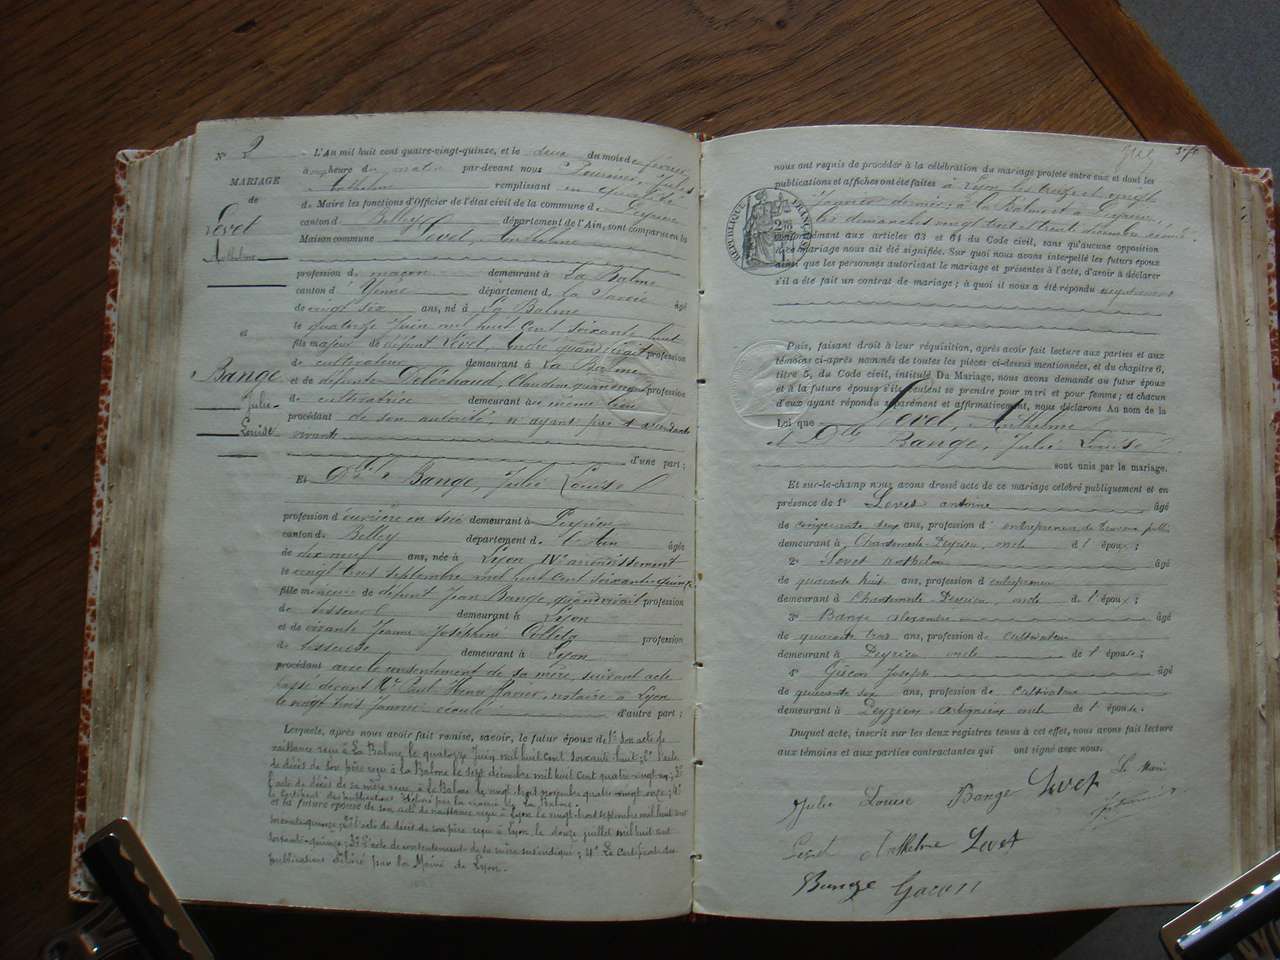 N° 2
MARIAGE
de
Levet
Anthelme
et
Bange
Julie
Louise
L'An mil huit cent quatre-vingt-quinze, et le deux du mois de février
à heure du matin par-devant nous Fournier, Jules
Anthelme remplissant en
de Maire les fonctions d'Officier de l'état civil de la commune de Peyrieu
canton de Belley département de l'Ain, sont comparus en la
Maison commune Levet, Anthelme
profession de maçon demeurant à La Balme
canton d'Yenne département de la Savoie âgé
de vingt six ans, né à La Balme
le quatorze juin mil huit cent soixante huit
fils majeur de défunt Levet, André quand vivait profession
de cultivateur demeurant à La Balme
et de défunte Déléchaud, Claudine quand vivait profession
de cultivatrice demeurant au même lieu
procédant de son autorité, n'ayant pas d'ascendants
vivants
d'une part ;
Et Dlle Bange, Julie Louise
profession d'ouvrière en soie demeurant à Peyrieu
canton de Belley département de l'Ain âgée
de dix neuf ans, née à Lyon IVe arrondissement
le vingt huit septembre mil huit cent soixante quinze
fille mineure de défunt Jean Bange, quand vivait profession
de tisseur demeurant à Lyon
et de vivante Jeanne Joséphine profession
de tisseuse demeurant à Lyon
procédant avec le consentement de sa mère, suivant acte
passé devant Me Paul Henri notaire à Lyon
le vingt huit janvier écoulé
d'autre part ;
Lesquels, après nous avoir fait remise, savoir, le futur époux de 1° son acte de
naissance reçu à La Balme le quatorze Juin mil huit cent soixante huit ; 2° l'acte
de décès de son père reçu à La Balme le sept décembre mil huit cent quatre vingt un ; 3°
l'acte de décès de sa mère reçu à La Balme le vingt huit novembre quatre vingt onze ; 4°
le certificat des publications délivré par la mairie de La Balme.
et la future épouse de son acte de naissance reçu à Lyon le vingt huit septembre mil huit cent
soixante quinze ; 2° l'acte de décès de son père reçu à Lyon le douze juillet mil huit cent
soixante quinze ; 3° l'acte de consentement de sa mère susindiqué ; 4° Le Certificat des
publications délivré par la Mairie de Lyon.
nous ont requis de procéder à la célébration du mariage projeté entre eux et dont les
publications et affiches ont été faites à Lyon les treize et vingt
janvier dernier, à La Balme et à Peyrieu,
les dimanches vingt trois et trente décembre
conformément aux articles 63 et 64 du Code civil, sans qu'aucune opposition
de mariage nous ait été signifiée. Sur quoi nous avons interpellé les futurs époux
ainsi que les personnes autorisant le mariage et présentes à l'acte, d'avoir à déclarer
s'il a été fait un contrat de mariage ; à quoi il nous a été répondu négativement
RÉPUBLIQUE FRANÇAISE
Puis, faisant droit à leur réquisition, après avoir fait lecture aux parties et aux
témoins ci-après nommés de toutes les pièces ci-dessus mentionnées, et du chapitre 6,
titre 5, du Code civil, intitulé Du Mariage, nous avons demandé au futur époux
et à la future épouse s'ils veulent se prendre pour mari et pour femme ; et chacun
d'eux ayant répondu séparément et affirmativement, nous déclarons Au nom de la
Loi que Levet, Anthelme
et Dlle Bange, Julie Louise
sont unis par le mariage.
Et sur-le-champ nous avons dressé acte de ce mariage célébré publiquement et en
présence de 1° Levet antoine âgé
de cinquante deux ans, profession d'entrepreneur de travaux publics
demeurant à Chantemerle Peyrieu, oncle de l'époux ;
2° Levet anthelme âgé
de quarante huit ans, profession d'entrepreneur
demeurant à Chantemerle Peyrieu, oncle de l'époux ;
3° Bange alexandre âgé
de quarante trois ans, profession de cultivateur
demeurant à Peyrieu oncle de l'épouse ;
4° Joseph âgé
de quarante six ans, profession de cultivateur
demeurant à Peyzieux Arbignieu oncle de l'épouse.
Duquel acte, inscrit sur les deux registres tenus à cet effet, nous avons fait lecture
aux témoins et aux parties contractantes qui ont signé avec nous.
Julie Louise Bange Levet Le Maire
Levet Anthelme Levet
Bange